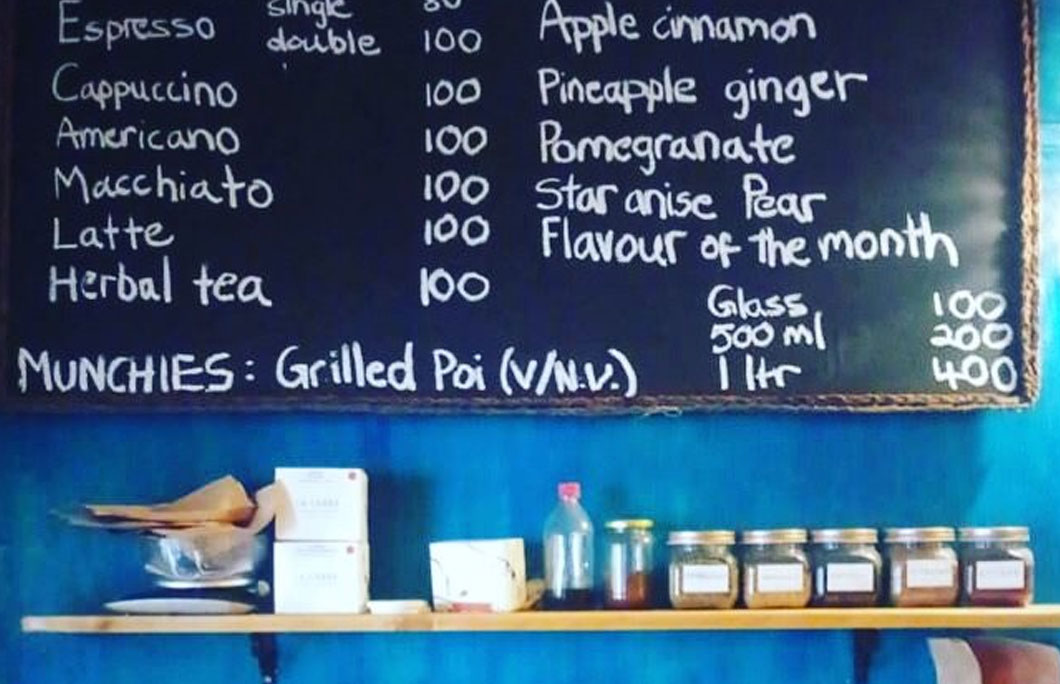 Espresso single 80
double 100
Cappuccino 100
Americano 100
Macchiato 100
Latte 100
Herbal tea 100
MUNCHIES: Grilled Poi (V/N.V.)
Apple cinnamon
Pineapple ginger
Pomegranate
Star anise Pear
Flavour of the month
Glass 100
500 ml 200
1 ltr 400